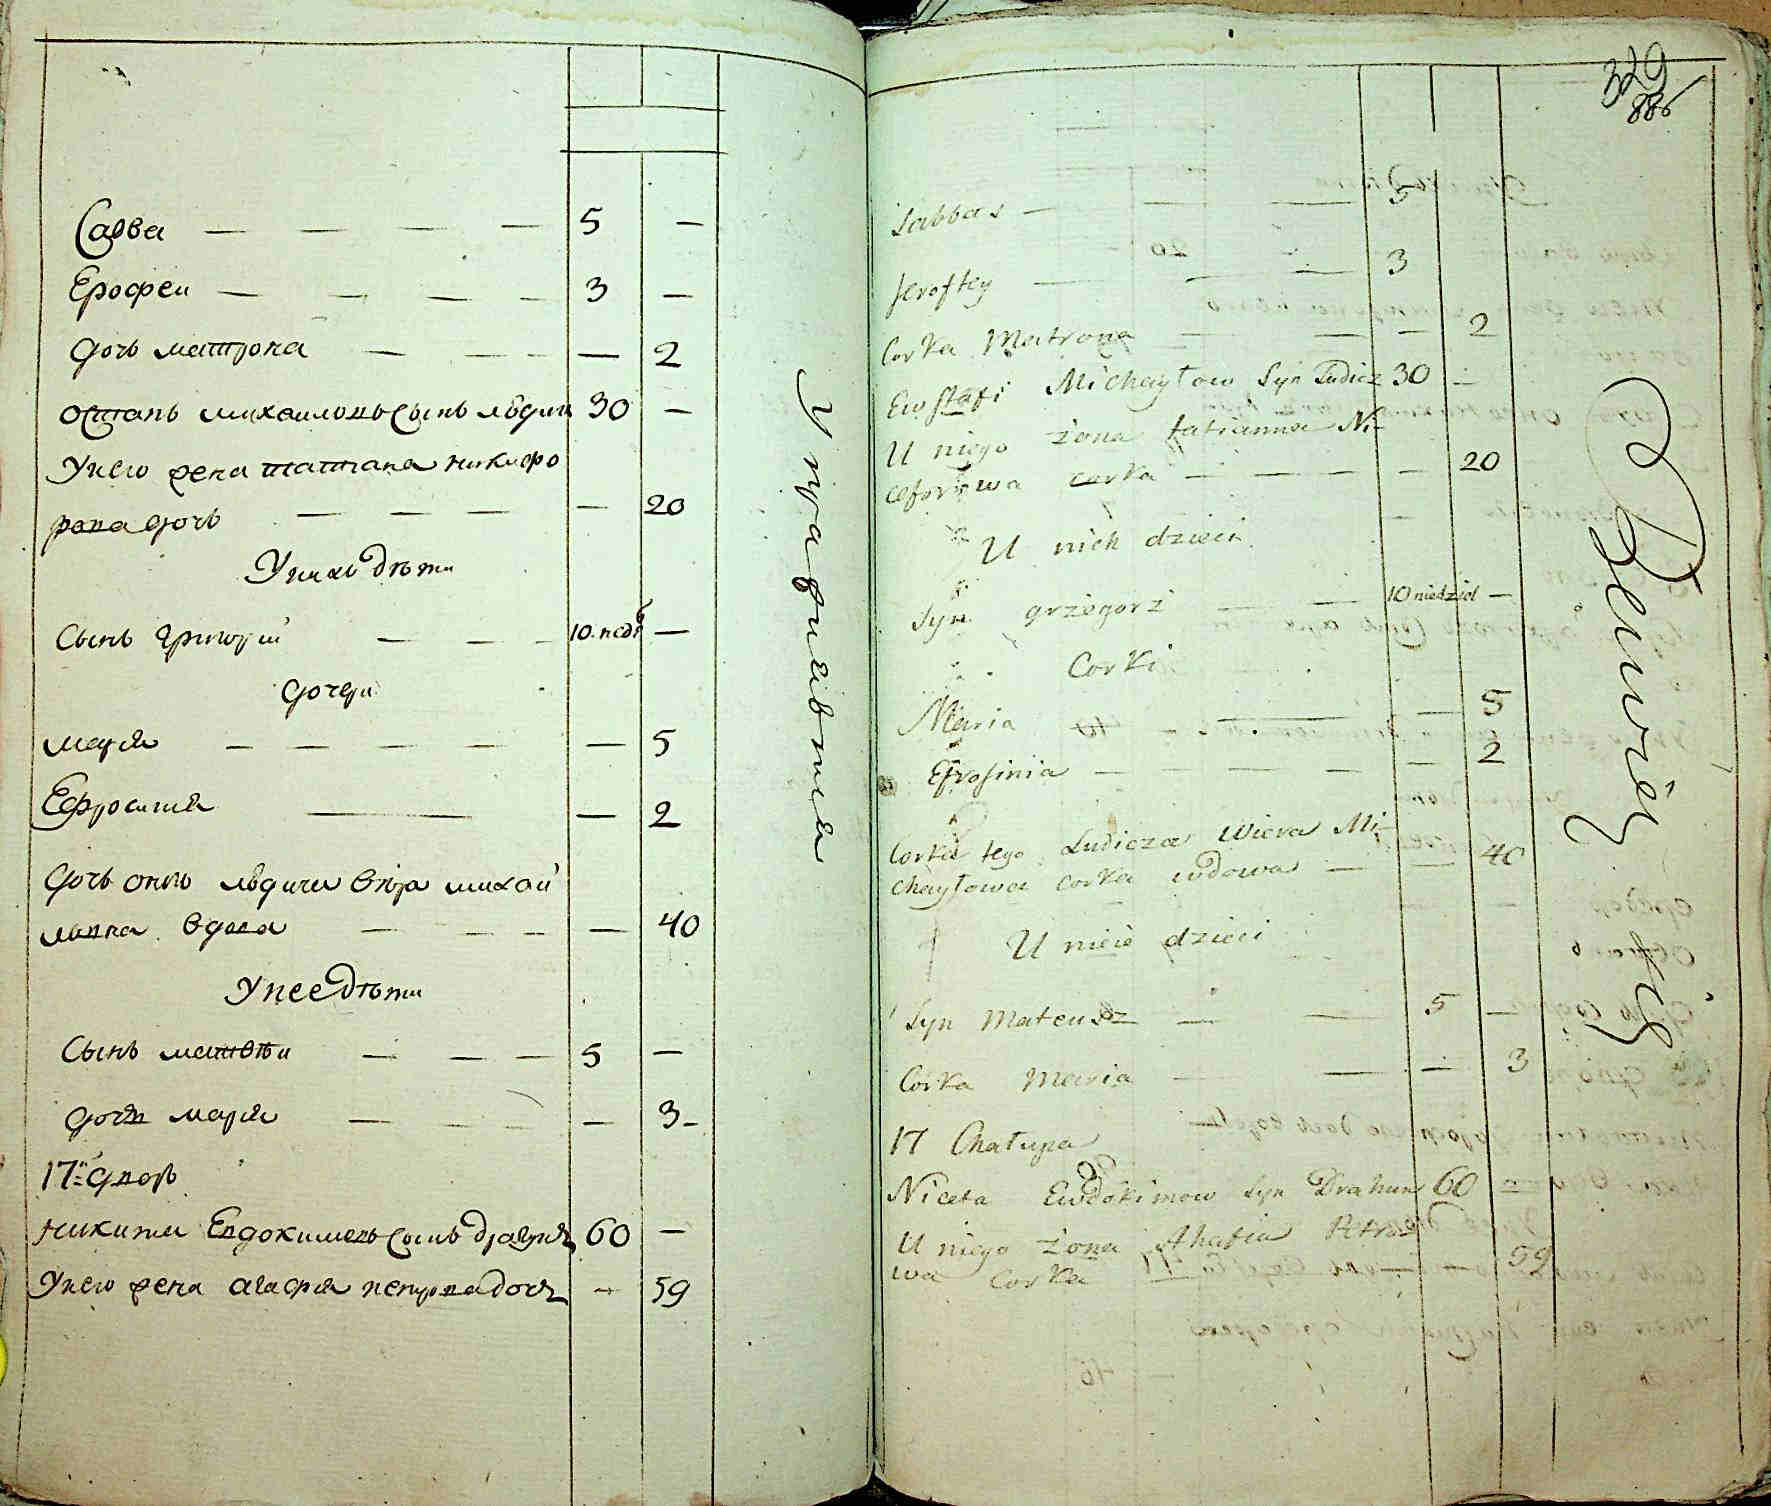 Савва — — — — 5 —
Ерофеи — — — — 3 —
дочь матрона — — — — 2
Остапъ михаиловъ сынъ лѣдичъ 30 —
У него жена татиана никифо
рова дочь — — — — 20
У нихъ дѣти
Сынъ григории — — — 10. недѣ —
дочери
мария — — — — — — 5
Ефросиния — — 2
Дочь оного лѣдича вѣра михаи
лвна вдова — — — — — 40
У нее дѣти
Сынъ матвѣи — — — 5 —
дочь мария — — — — — 3 –
17й дворъ
никита Евдокимовъ сынъ драгунъ 60 —
У него жена агафия петрова дочь — 59
329
886
Sabbas — — — 5
Jeroftey — — — 3
Corka Matrona — — — 2
Ewstafi Michayłow Syn Ludicz 30 —
U niego żona tatianna Ni-
ceforowa corka — — — — 20
U nich dzieci
Syn grzegorz — — 10 niedziel —
Corki
Maria — — 5
Efrosinia — — — — — 2
Corka tego Ludicza Wiera Mi-
chayłowa corka wdowa — — 40
U niéie dzieci
Syn Mateusz — — 5 —
Corka Maria — — — 3
17 Chałupa
Niceta Ewdokimow syn Drahun 60 —
U niego żona Ahafia Petro
wa Corka — — 59